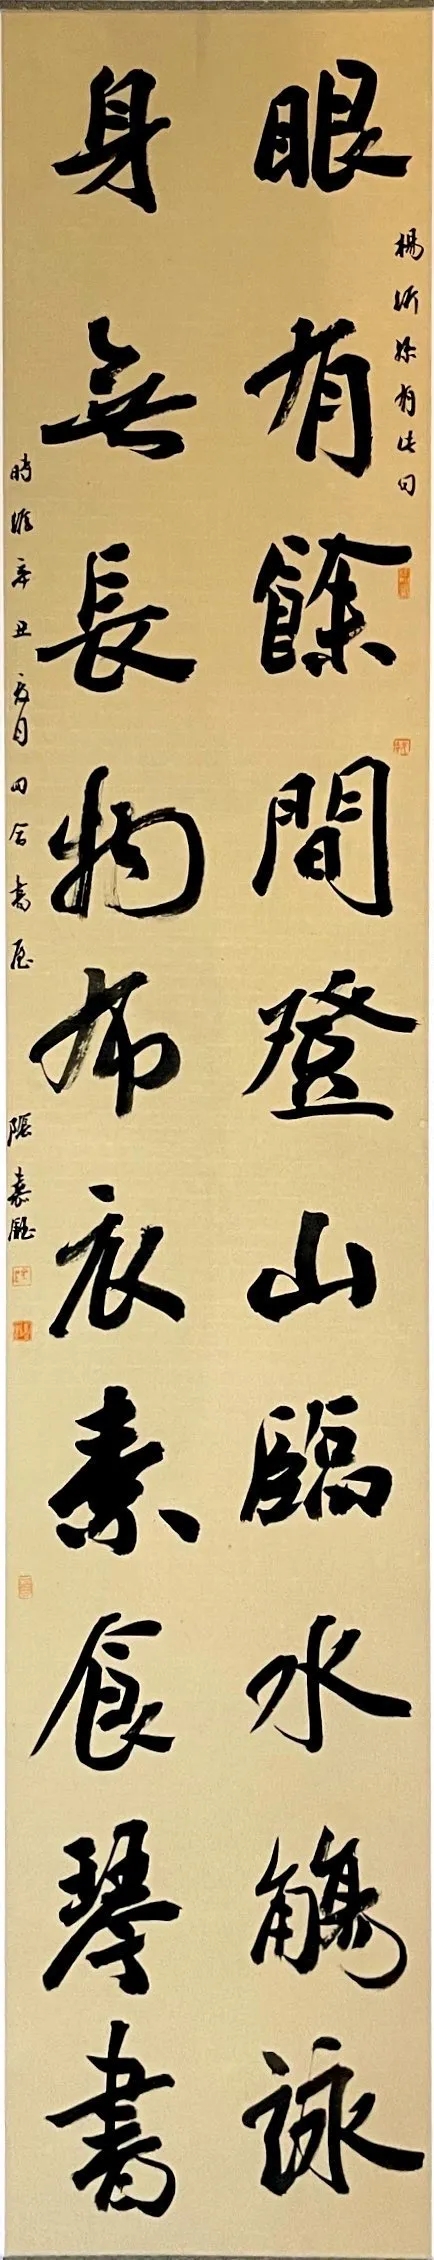 眼有餘間登山臨水觴詠
楊沂孫有此句
身無長物布衣素食琴書
時維辛丑夏月田舍書屋
張嘉鈺